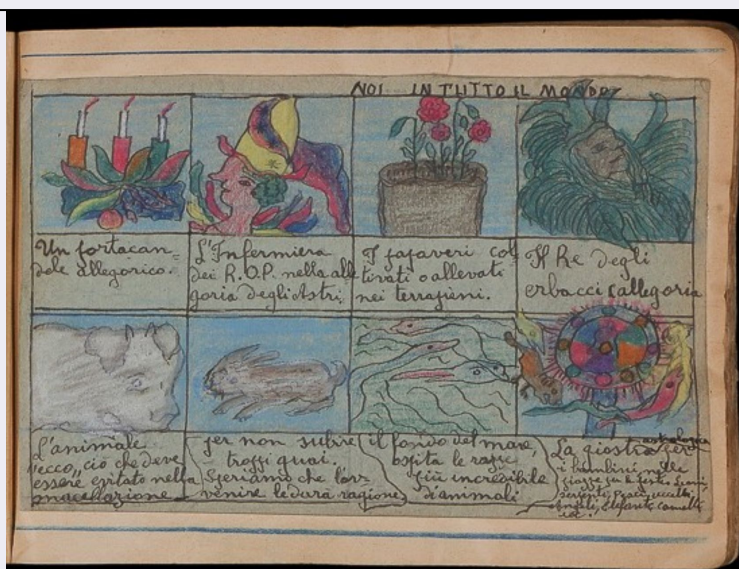 NOI IN TUTTO IL MONDO
Un portacan-
dele allegorico.
L'Infermiera
dei R.O.P. nella alle
goria degli Astri.
I papaveri col
tivati o allevati
nei terrapieni.
Il Re degli
erbacci (allegoria
L'animale
"ecco" ciò che deve
essere evitato nella
macellazione
per non subire
troppi guai.
Speriamo che l'av
venire le darà ragione
il fondo del mare,
ospita le razze
più incredibile
d'animali
La giostra astrologica per
i bambini nelle
piazze per le feste Leoni,
serpenti, Pesci, uccelli,
Angeli, Elefanti, Camelli
ecc.